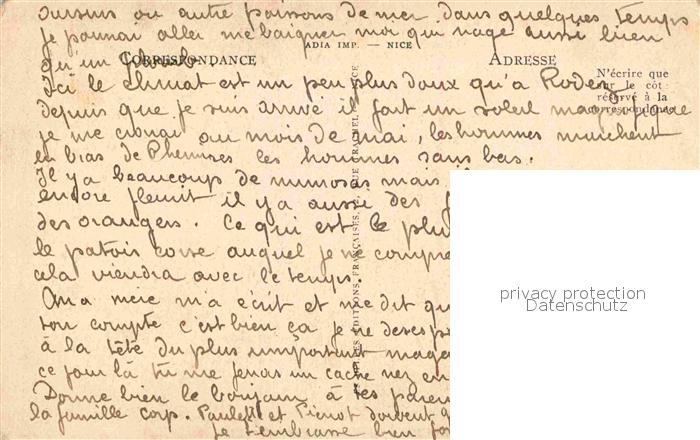 oursins ou autre poissons de mer. dans quelques temps
je pourrai aller me baigner moi qui nage aussi bien
ADIA IMP. — NICE
qu'un plomb.
CORRESPONDANCE
ADRESSE
N'écrire que
sur le côté
réservé à la
correspondance
Ici le climat est un peu plus doux qu'a Rodez
depuis que je suis arrivé il fait un soleil magnifique
je me croirai au mois de mai, les hommes marchent
en bras de chemises les hommes sans bas.
Il y a beaucoup de mimosas mais
encore fleurit il y a aussi des
des orangers. Ce qui est le plu
le patois corse auquel je ne compre
cela viendra avec le temps.
Ma mère m'a écrit et me dit qu
ton compte c'est bien ça je ne deses p
à la tête du plus important maga
ce jour là tu me feras un cache nez en
Donne bien le bonjour à tes paren
la famille corp. Paulette et Pierrot doivent
je t'embrasse bien fo
ÉDITIONS FRANÇAISES
NICE
privacy protection
Datenschutz